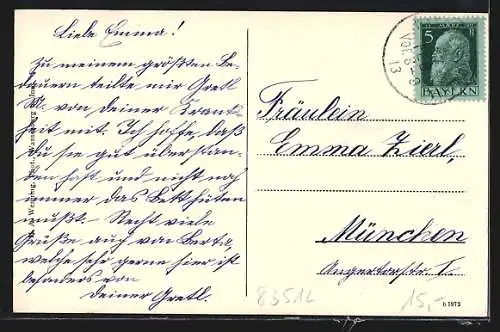 Liebe Emma!
Zu meinem größten Be-
dauern teilte mir Gretl
M. von deiner Krank-
heit mit. Ich hoffe daß
du sie gut überstan-
den hast und nicht noch
immer das Bett hüten
mußt. - Recht viele
Grüße auch von Berta,
welche sehr gerne hier ist
besonders von
deiner Gretl.
5
BAYERN
VOR. 13
Fräulein
Emma Zierl,
München
Angertorstr. 1.
83512
15,-
h 1972